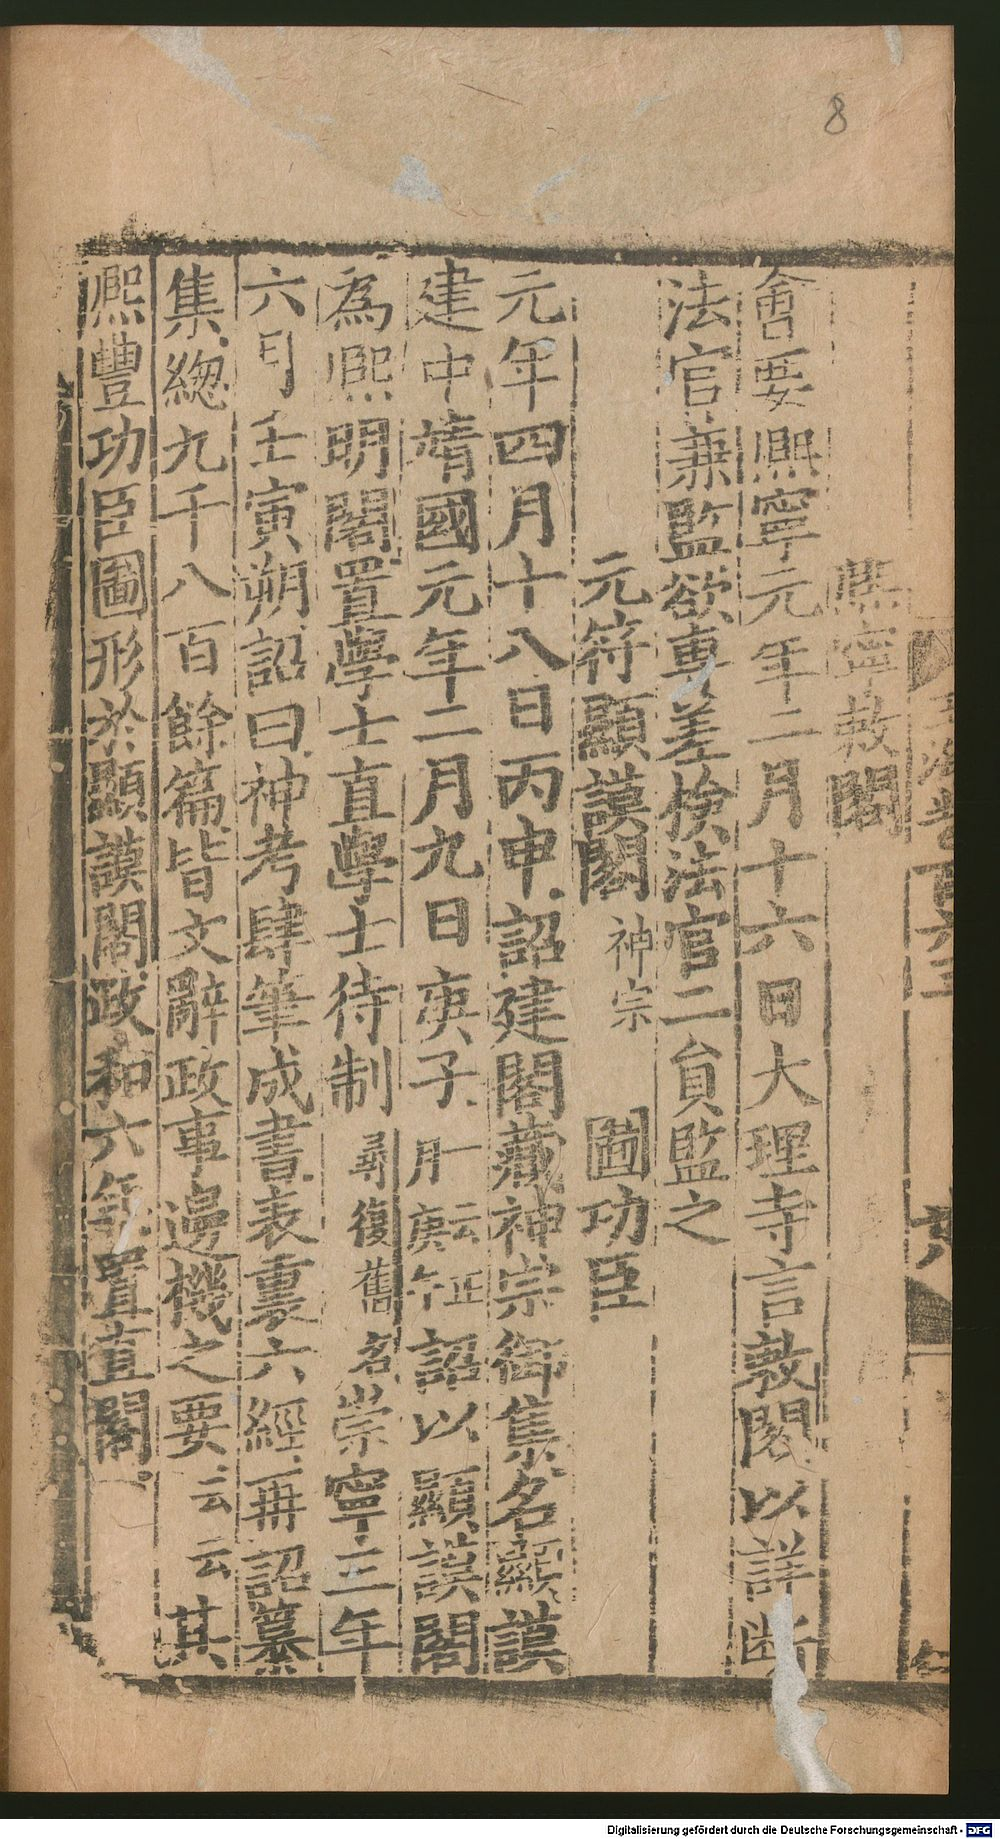 8
熈寧敕閣
㑹要熈寧元年二月十六日大理寺言敕閣以詳斷
法官兼監欲専差檢法官二貟監之
元符顯謨閣 神宗 圖功臣
元年四月十八日丙申詔建閣藏神宗御集名顯謨
建中靖國元年二月九日庚子一云正月庚午詔以顯謨閣
為熈明閣置學士直學士待制尋復舊名崇寧三年
六月壬寅朔詔曰神考肆筆成書表裏六經再詔纂
集緫九千八百餘篇皆文辭政事邊機之要云云其
熈豐功臣圖形於顯謨閣政和六年置直閣
Digitalisierung gefördert durch die Deutsche Forschungsgemeinschaft - DFG